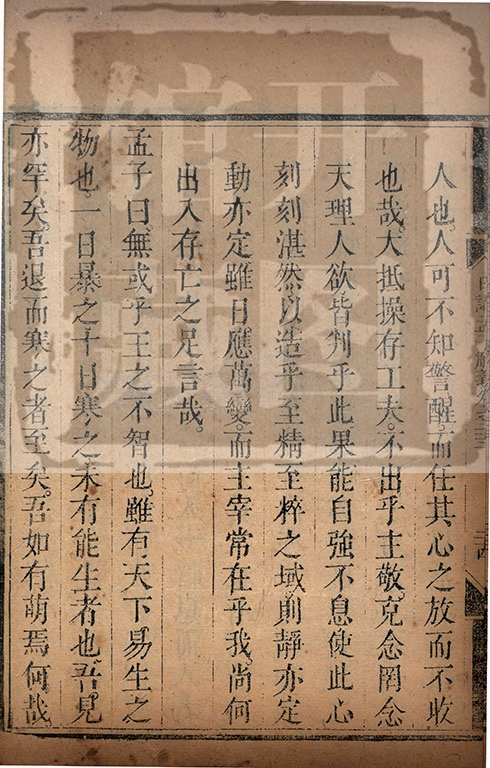 人也。人可不知警醒。而任其心之放而不收
也哉。大抵操存工夫。不出乎主敬。克念罔念
天理人欲皆判乎此果能自強不息使此心
刻刻湛然。以造乎至精至粹之域。則靜亦定
動亦定雖日應萬變。而主宰常在乎我。尚何
出入存亡之足言哉。
孟子曰。無或乎王之不智也。雖有天下易生之
物也。一日暴之十日寒之未有能生者也。吾見
亦罕矣。吾退而寒之者至矣。吾如有萌焉何哉。